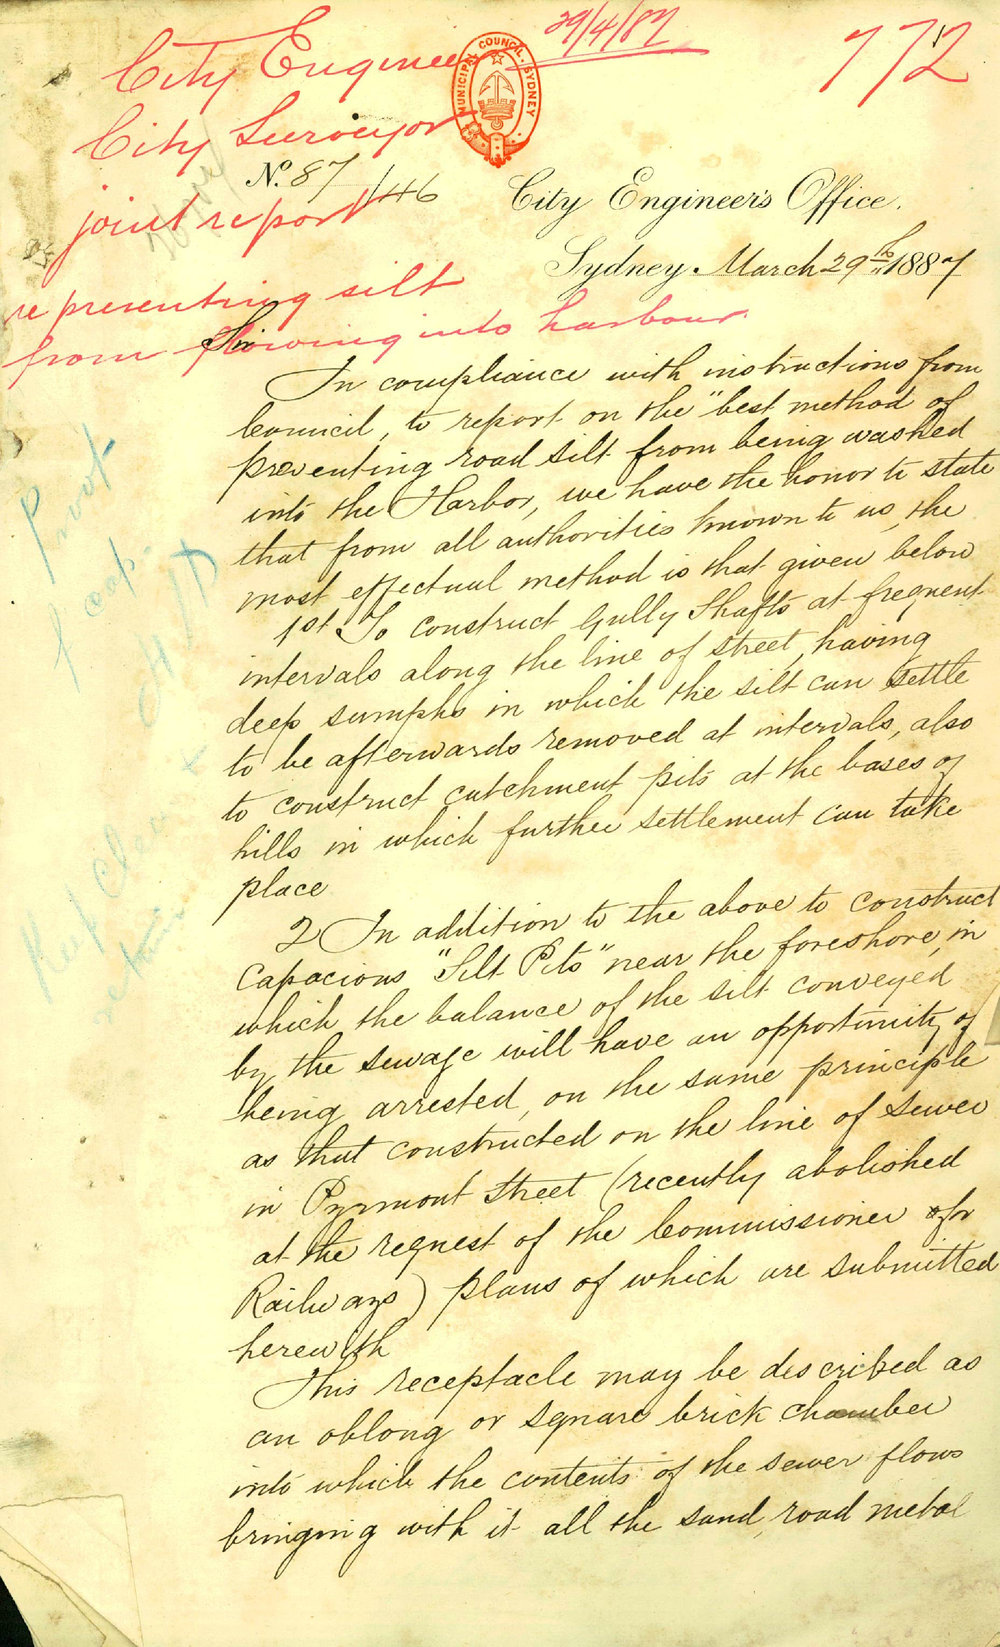 29/4/87
772
City Engineer
City Surveyor
MUNICIPAL COUNCIL. SYDNEY
No. 87/146
City Engineer's Office.
joint report
Sydney. March 29th 1887
re presenting silt
from flowing into harbour.
Sir
In compliance with instructions from
Council, to report on the "best method of
preventing road silt from being washed
into the Harbor, we have the honor to state
that from all authorities known to us, the
most effectual method is that given below
1st To construct Gully Shafts at frequent
intervals along the line of street, having
deep sumphs in which the silt can settle
to be afterwards removed at intervals, also
to construct catchment pits at the bases of
hills in which further settlement can take
place
2 In addition to the above to construct
capacious "Silt Pits" near the foreshore, in
which the balance of the silt conveyed
by the sewage will have an opportunity of
being arrested, on the same principle
as that constructed on the line of Sewer
in Pyrmont Street (recently abolished
at the request of the Commissioner for
Railways) plans of which are submitted
herewith
This receptacle may be described as
an oblong or square brick chamber
into which the contents of the sewer flows
bringing with it all the sand, road metal